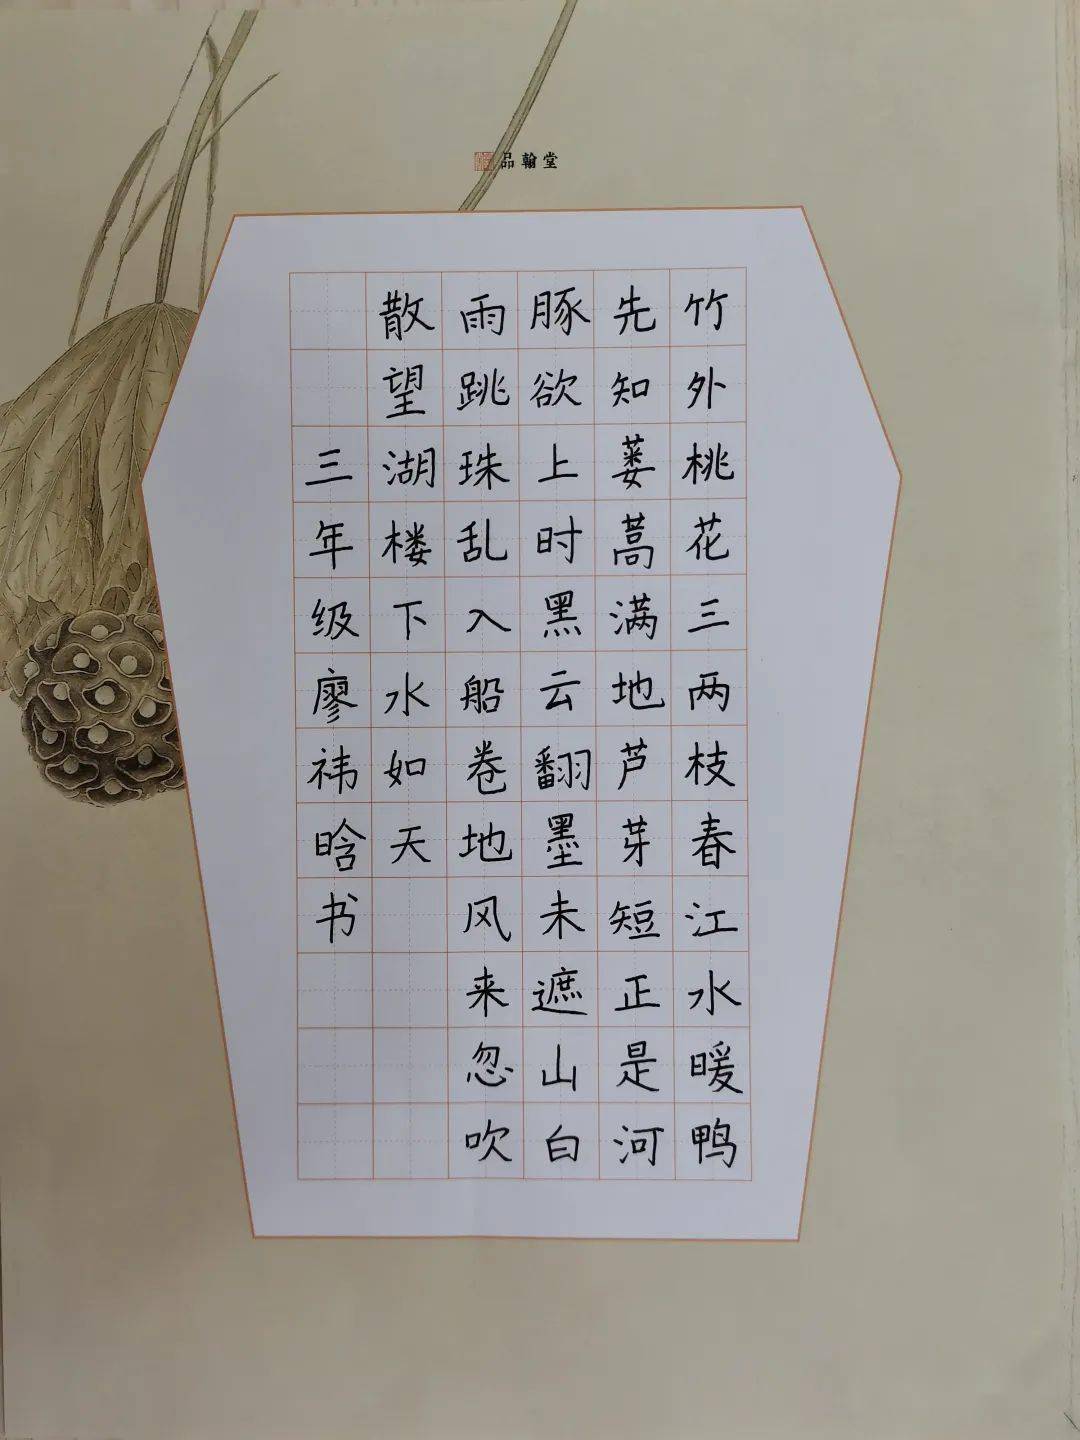 品翰堂
竹外桃花三两枝春江水暖鸭
先知蒌蒿满地芦芽短正是河
豚欲上时黑云翻墨未遮山白
雨跳珠乱入船卷地风来忽吹
散望湖楼下水如天
三年级廖祎晗书